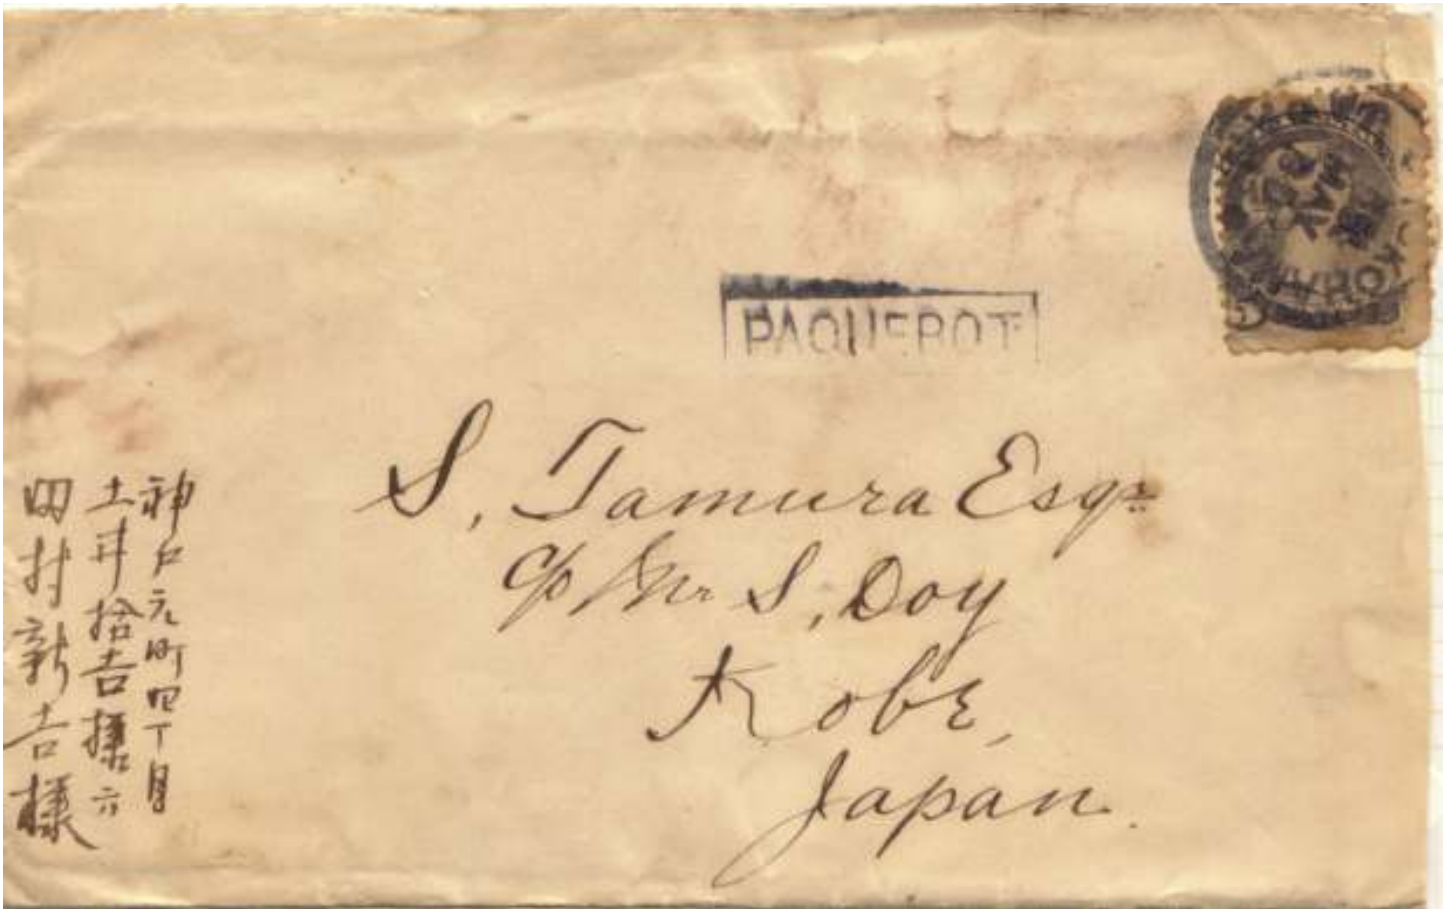 PAQUEBOT
S. Tamura Esqr
c/o Mr S. Doy
Kobe,
Japan.
神戸元町四丁目
土井拾吉様方
田村新吉様
YOKOHAMA
5